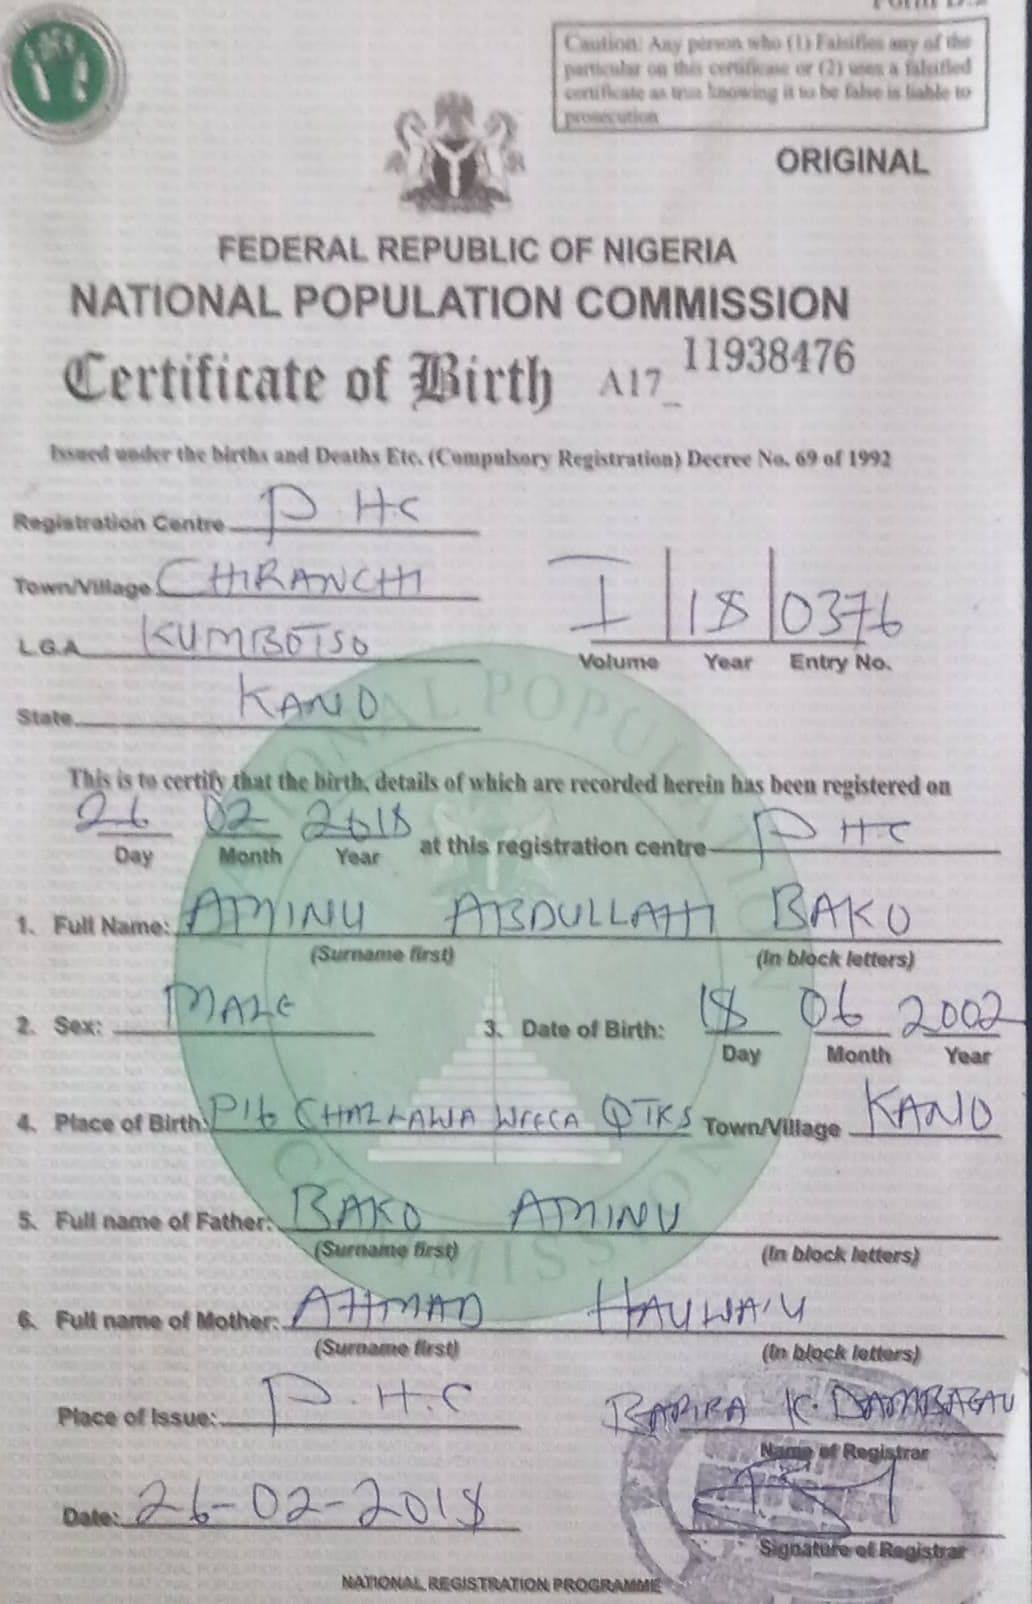 Caution: Any person who (1) Falsifies any of the
particular on this certificate or (2) uses a falsified
certificate as true knowing it to be false is liable to
prosecution
ORIGINAL
FEDERAL REPUBLIC OF NIGERIA
NATIONAL POPULATION COMMISSION
Certificate of Birth A17_ 11938476
Issued under the births and Deaths Etc. (Compulsory Registration) Decree No. 69 of 1992
Registration Centre P.H.C
Town/Village CHIRANCHI
L.G.A KUMBOTSO
State KANO
I 18 0376
Volume Year Entry No.
This is to certify that the birth, details of which are recorded herein has been registered on
26 02 2018 at this registration centre PHC
Day Month Year
1. Full Name: AMINU ABDULLAHI BAKO
(Surname first) (In block letters)
2. Sex: MALE 3. Date of Birth: 18 06 2002
Day Month Year
4. Place of Birth: CHALLAWA QTRS Town/Village KANO
5. Full name of Father: BAKO AMINU
(Surname first) (In block letters)
6. Full name of Mother: AHMAD HAUWA'U
(Surname first) (In block letters)
Place of Issue: P.H.C
K. DAMBAGAU
Name of Registrar
Date: 26-02-2018
Signature of Registrar
NATIONAL REGISTRATION PROGRAMME
NATIONAL POPULATION COMMISSION